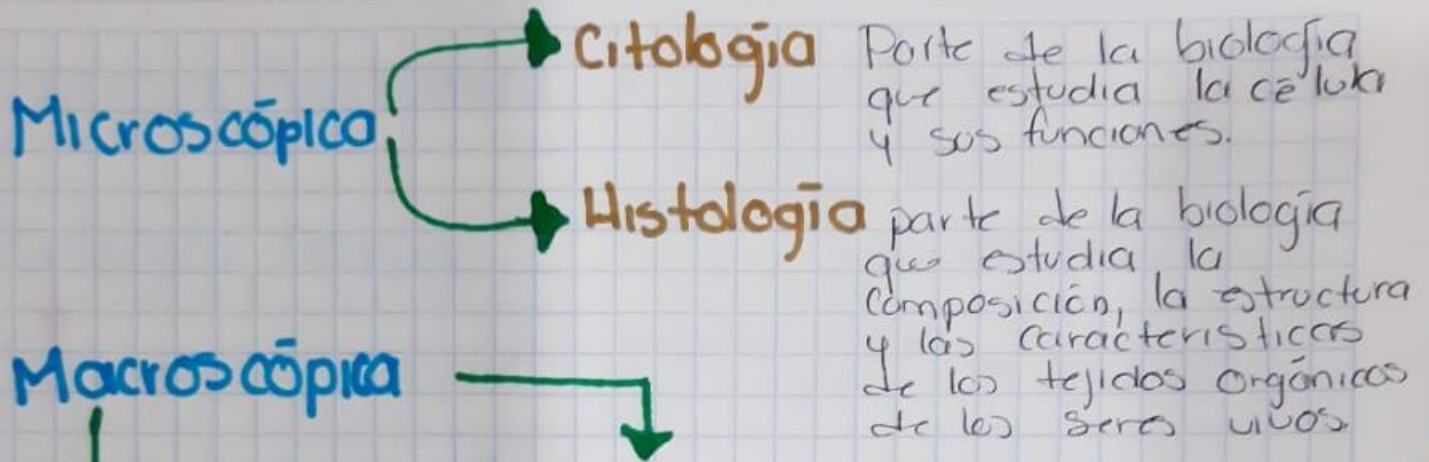 Microscópica
Citología
Parte de la biología
que estudia la célula
y sus funciones.
Histología
parte de la biología
que estudia la
composición, la estructura
y las características
de los tejidos orgánicos
de los seres vivos
Macroscópica